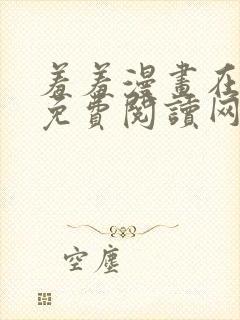 羞羞漫畫在
免費閱讀网
空塵